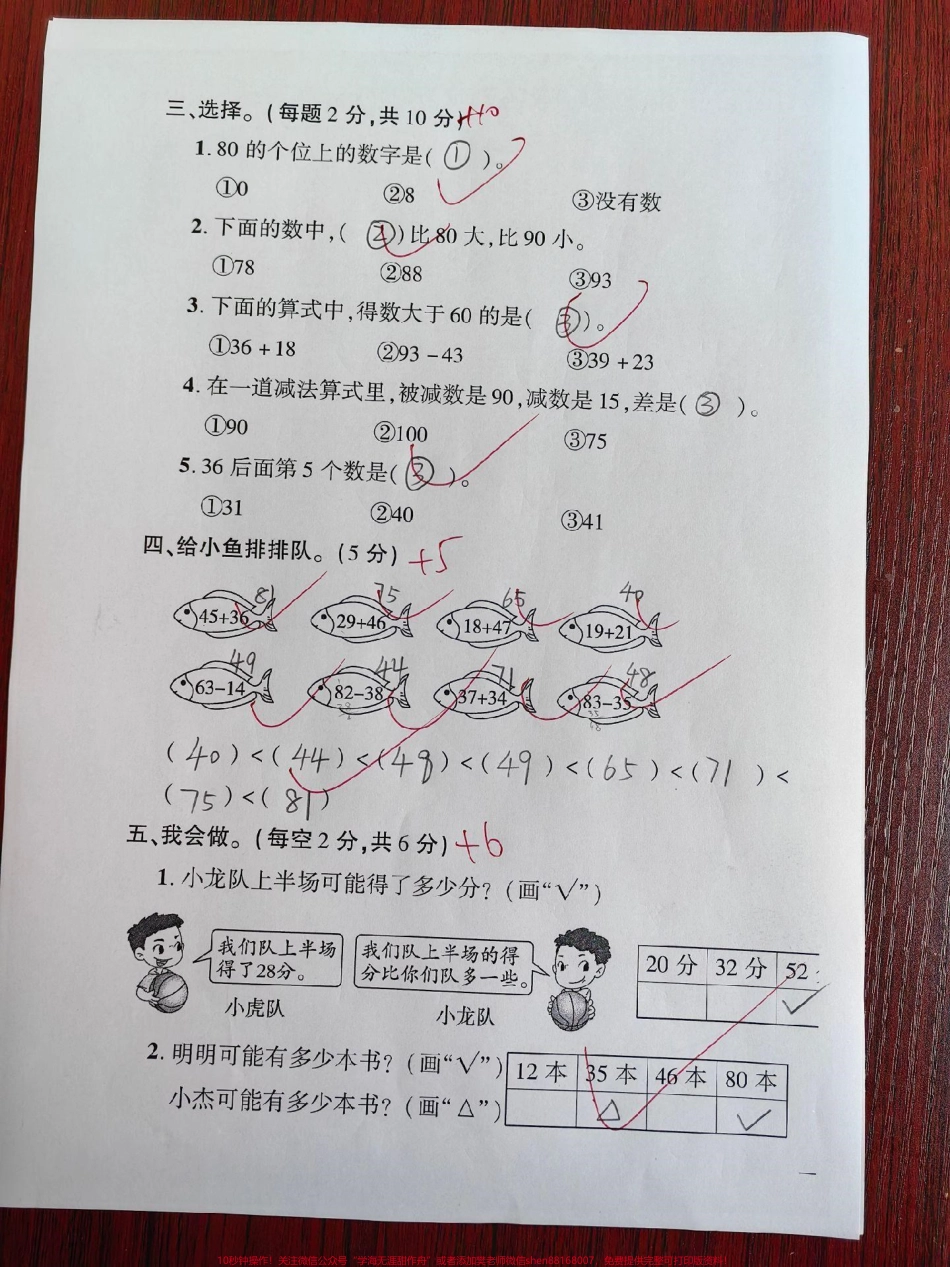 三、选择。(每题2分,共10分)+10
1. 80的个位上的数字是( ① )。
①0 ②8 ③没有数
2. 下面的数中,( ② )比80大,比90小。
①78 ②88 ③93
3. 下面的算式中,得数大于60的是( ③ )。
①36+18 ②93-43 ③39+23
4. 在一道减法算式里,被减数是90,减数是15,差是( ③ )。
①90 ②100 ③75
5. 36后面第5个数是( ③ )。
①31 ②40 ③41
四、给小鱼排排队。(5分) +5
81 75 65 40
45+36 29+46 18+47 19+21
49 44 71 48
63-14 82-38 37+34 83-35
(40)<(44)<(48)<(49)<(65)<(71)<
(75)<(81)
五、我会做。(每空2分,共6分) +6
1. 小龙队上半场可能得了多少分?(画“√”)
我们队上半场得了28分。 我们队上半场的得分比你们队多一些。 20分 32分 52
小虎队 小龙队 ✓
2. 明明可能有多少本书?(画“√”) 12本 35本 46本 80本
小杰可能有多少本书?(画“△”) △ ✓
10秒钟操作!关注微信公众号“学海无涯甜作舟”或者添加窦老师微信shen88168007,免费提供完整可打印版资料!